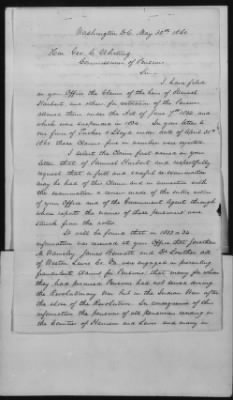 Washington D.C. May 30th 1860.
Hon Geo. C. Whiting
Commissioner of Pensions
Sir,
I have filed
in your Office the Claims of the heirs of Samuel
and others for restitution of the Pension
allowed them under the Act of June 7th 1832 and
which were suspended in 1834. In your letter to
me firm of Tucker & Lloyd under date of April 30th
1860 these Claims five in number were rejected.
I select the Claim first named in your
letter that of Samuel and respectfully
request that a full and careful re-examination
may be had of this Claim and in connection with
the examination a review made of the entire action
of your Office and of the Government Agent through
whose reports the names of these pensioners were
struck from the rolls.
It will be found that in 1833 & 34
information was received at your Office that Jonathan
James and Dr. all
of Weston Lewis Co. Va. was engaged in presenting
fraudulent claims for Pensions that many for whom
they had procured Pensions had not served during
the Revolutionary War but in the Indian War after
the close of the Revolution. In consequence of this
information the pensions of all pensioners residing in
the counties of Harrison and Lewis and many in